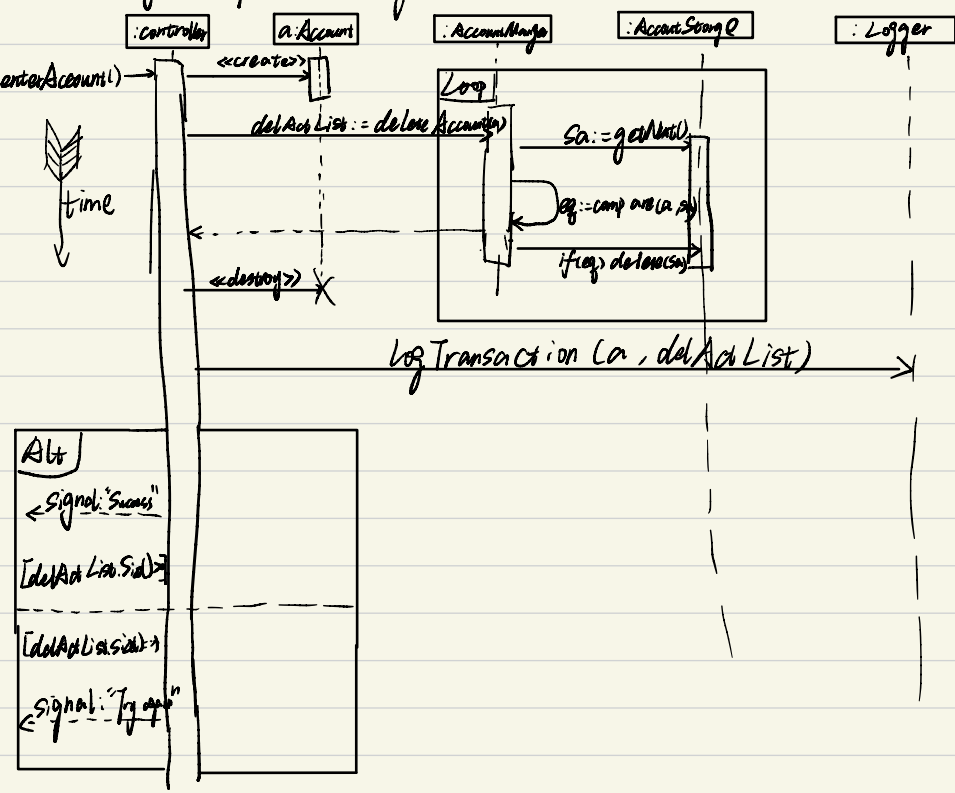 :controller
a:Account
:AccountManger
:AccoutStorage
: Logger
enterAccount()
<<create>>
Loop
delActList:= delese Account(a)
sa:=getNext()
time
eq:=compare(a,sa)
if(eq) delese(sa)
<<destroy>>
LogTransaction (a, delActList)
Alt
signal:"Success"
[delActList.Sid)>]
[delActList.sid)=)
signal:"Try again"